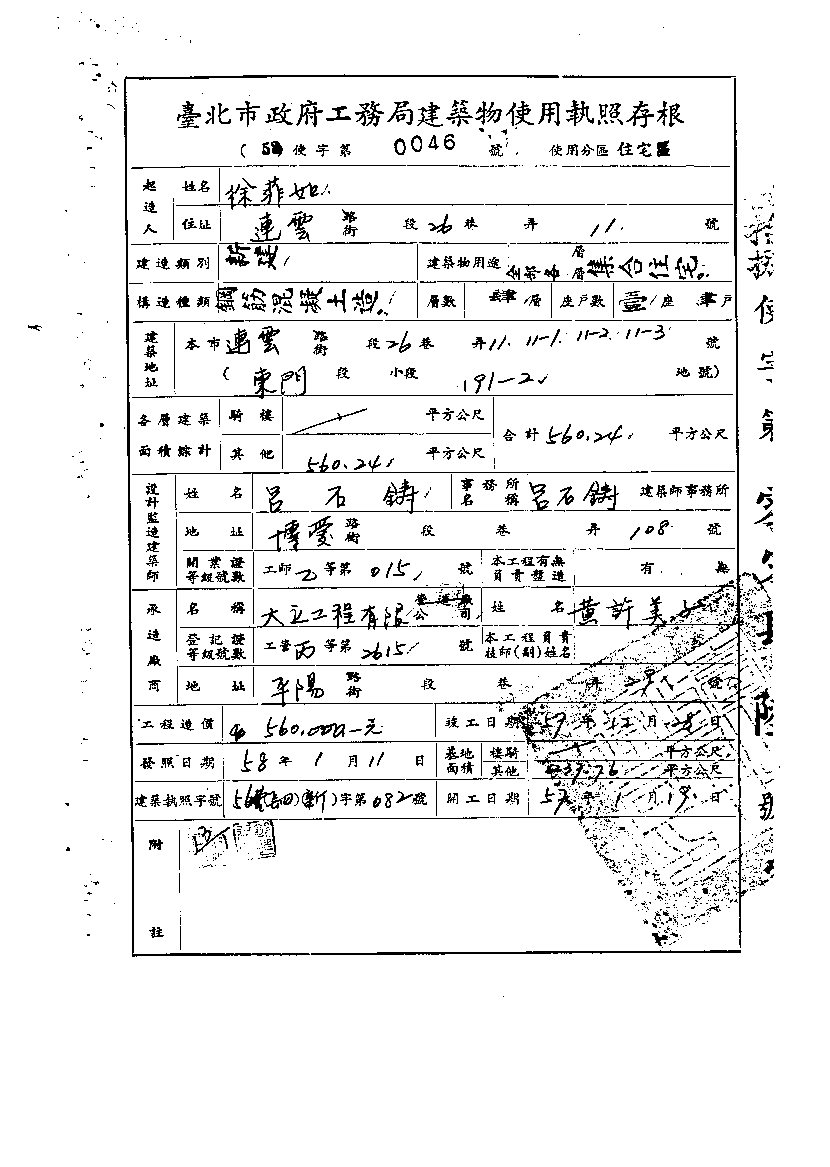 臺北市政府工務局建築物使用執照存根
(58 使字第 0046 號) 使用分區 住宅區
起造人 姓名 徐菲如
住址 連雲 路街 段 26 巷 弄 11 號
建造類別 新建 建築物用途 全部各層層 集合住宅
構造種類 鋼筋混凝土造 層數 肆 層 座戶數 壹 座 肆 戶
建築地址 本市 連雲 路街 段 26 巷 弄 11. 11-1. 11-2. 11-3 號
( 東門 段 小段 191-2 地號)
各層建築面積綜計 騎樓 平方公尺 合計 560.24 平方公尺
其他 560.24 平方公尺
設計監造建築師 姓名 呂石鑄 事務所名稱 呂石鑄 建築師事務所
地址 博愛 路街 段 巷 弄 108 號
開業證等級號數 工師 乙 等第 015 號 本工程有無負責監造 有 無
承造廠商 名稱 大立工程有限 營造廠公司 姓名 黃許美
登記證等級號數 工營 丙 等第 2615 號 本工程負責技師(副)姓名
地址 平陽 路街 段 巷 弄 號
工程造價 560,000-元 竣工日期 57 年 12 月 28 日
發照日期 58 年 1 月 11 日 基地面積 樓騎 平方公尺
其他 平方公尺
建築執照字號 56 (新) 字第 082 號 開工日期 57 年 1 月 19 日
附註
使字第
號